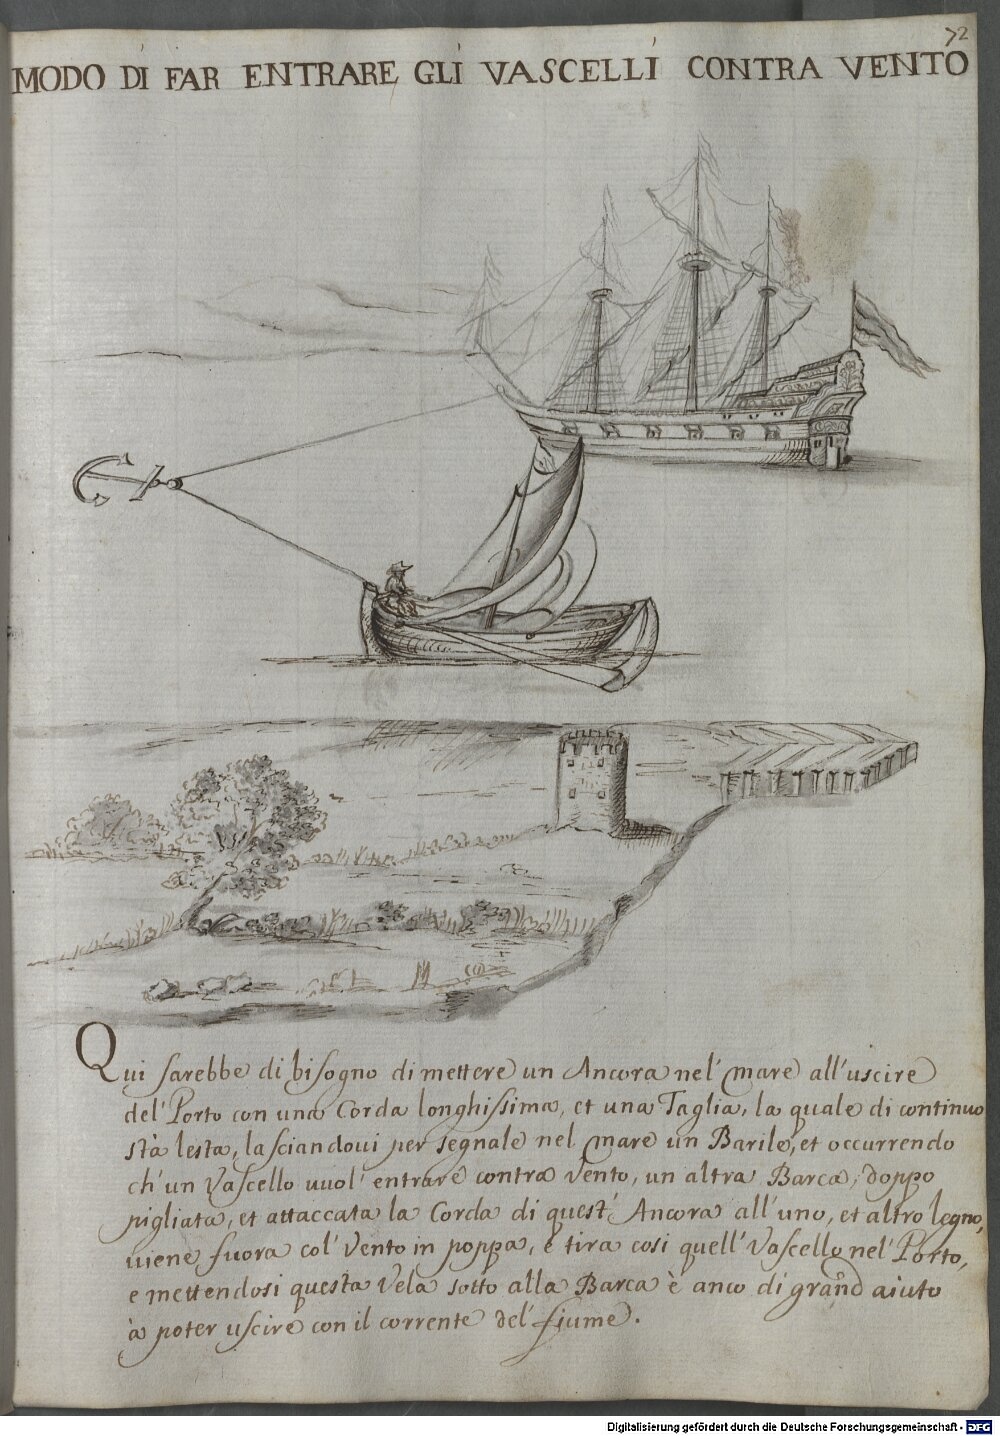 72
MODO DI FAR ENTRARE GLI VASCELLI CONTRA VENTO
Qui sarebbe di bisogno di mettere un Ancora nel' mare all'uscire
del' Porto con una Corda longhissima, et una Taglia, la quale di continuo
stà lesta, lasciandovi per segnale nel mare un Barile, et occurrendo
ch'un Vascello vuol' entrare contra Vento, un altra Barca, doppo
pigliata, et attaccata la Corda di quest' Ancora all'uno, et altro legno,
viene fuora col' Vento in poppa, e tira cosi quell' Vascello nel' Porto,
e mettendosi questa Vela sotto alla Barca è anco di grand aiuto
à poter uscire con il corrente del' fiume.
Digitalisierung gefördert durch die Deutsche Forschungsgemeinschaft - DFG